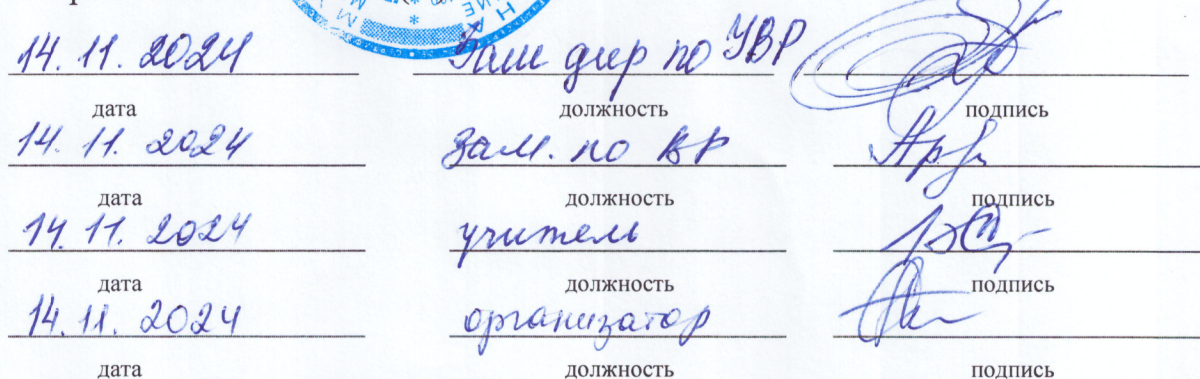 14.11.2024 Зам дир по УВР
дата должность подпись
14.11.2024 зам. по ВР
дата должность подпись
14.11.2024 учитель
дата должность подпись
14.11.2024 организатор
дата должность подпись